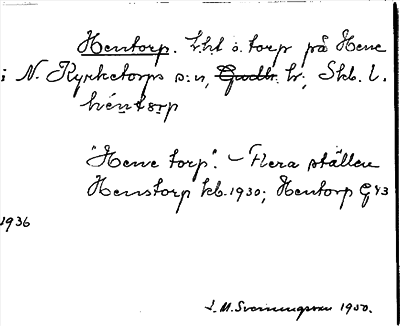 Hentorp. Lht o. torp på Hene
i N. Kyrketorps s:n, Gudh. hr; Skb. l.
héntorp
"Hene torp". – Flera ställen
Henstorp kb. 1930; Hentorp G 43
1936
J. M. Svenningsson 1950.